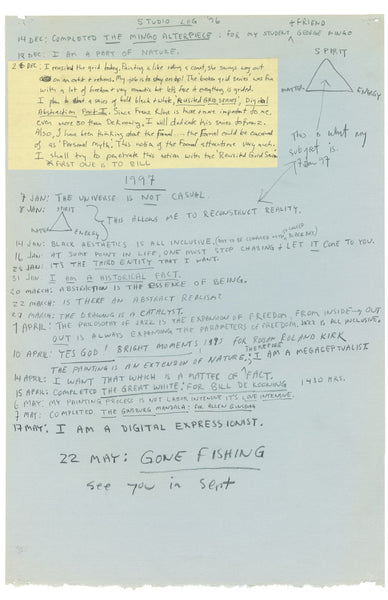 STUDIO LOG '96
14 DEC: COMPLETED THE MINGO ALTERPIECE: FOR MY STUDENT + FRIEND GEORGE MINGO
18 DEC: I AM A PART OF NATURE.
28 DEC: I revisited the grid today. Painting is like riding a comet, she swings way out
on an orbit & returns. My job is to stay on top! The broken grid series was fun
with a lot of freedom & very romantic but lets face it everything is grided.
I plan to start a series of bold black & white, REVISITED GRID SERIES, Digital
Abstraction Part I. Since Franz Kline is here & more important to me,
even more so than DeKooning, I will dedicate this series to Franz.
Also, I have been thinking about the formal the formal could be conceived
of as Personal myth. This notion of the formal attractive very much.
I shall try to penetrate this notion with the Revisited Grid Series
* FIRST ONE IS TO BILL
SPIRIT
MATTER
ENERGY
This is what my
subject is.
7 Jan 97
1997
7 JAN: THE UNIVERSE IS NOT CASUAL.
8 JAN: SPIRIT
MATTER
ENERGY
THIS ALLOWS ME TO RECONSTRUCT REALITY.
14 JAN: BLACK AESTHETICS IS ALL INCLUSIVE. (NOT TO BE CONFUSED WITH
16 JAN: AT SOME POINT IN LIFE, ONE MUST STOP CHASING & LET IT COME TO YOU.
28 JAN: IT'S THE THIRD ENTITY THAT I WANT.
31 JAN: I AM A HISTORICAL FACT.
20 MARCH: ABSTRACTION IS THE ESSENCE OF BEING.
22 MARCH: IS THERE AN ABSTRACT REALISM?
27 MARCH: THE DRAWING IS A CATALYST.
7 APRIL: THE PHILOSOPHY OF JAZZ IS THE EXPANSION OF FREEDOM, FROM INSIDE → OUT
OUT IS ALWAYS EXPANDING THE PARAMETERS OF FREEDOM. JAZZ IS ALL INCLUSIVE.
10 APRIL: YES GOD! BRIGHT MOMENTS 1997 FOR ROLAND KIRK
THE PAINTING IS AN EXTENSION OF NATURE, THEREFORE I AM A MEGACEPTUALIST
14 APRIL: I WANT THAT WHICH IS A MATTER OF FACT.
15 APRIL: COMPLETED THE GREAT WHITE: FOR BILL DE KOONING 1430 HRS.
6 MAY: MY PAINTING PROCESS IS NOT LABOR INTENSIVE IT'S LOVE INTENSIVE.
7 MAY: COMPLETED THE GINSBURG MANDALA: FOR ALLEN GINSBURG
17 MAY: I AM A DIGITAL EXPRESSIONIST.
22 MAY: GONE FISHING
see you in Sept